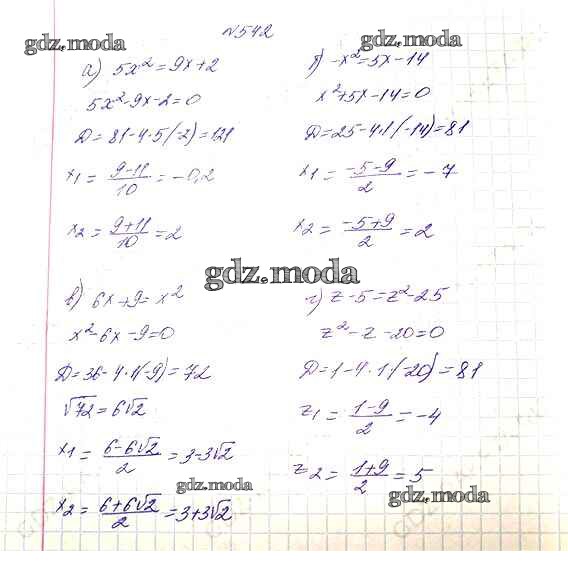 №542
gdz.moda
gdz.moda
а) 5x²=9x+2
5x²-9x-2=0
D=81-4·5·(-2)=121
x₁=(9-11)/10=-0,2
x₂=(9+11)/10=2
б) -x²=5x-14
x²+5x-14=0
D=25-4·1·(-14)=81
x₁=(-5-9)/2=-7
x₂=(-5+9)/2=2
gdz.moda
в) 6x+9=x²
x²-6x-9=0
D=36-4·1·(-9)=72
√72=6√2
x₁=(6-6√2)/2=3-3√2
x₂=(6+6√2)/2=3+3√2
gdz.moda
г) z-5=z²-25
z²-z-20=0
D=1-4·1·(-20)=81
z₁=(1-9)/2=-4
z₂=(1+9)/2=5
gdz.moda